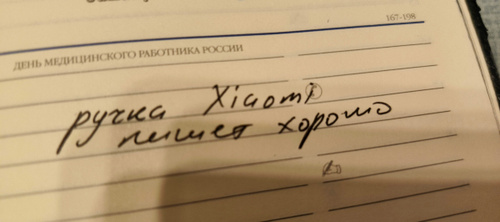 167-198
ДЕНЬ МЕДИЦИНСКОГО РАБОТНИКА РОССИИ
ручка Xiaomi
пишет хорошо